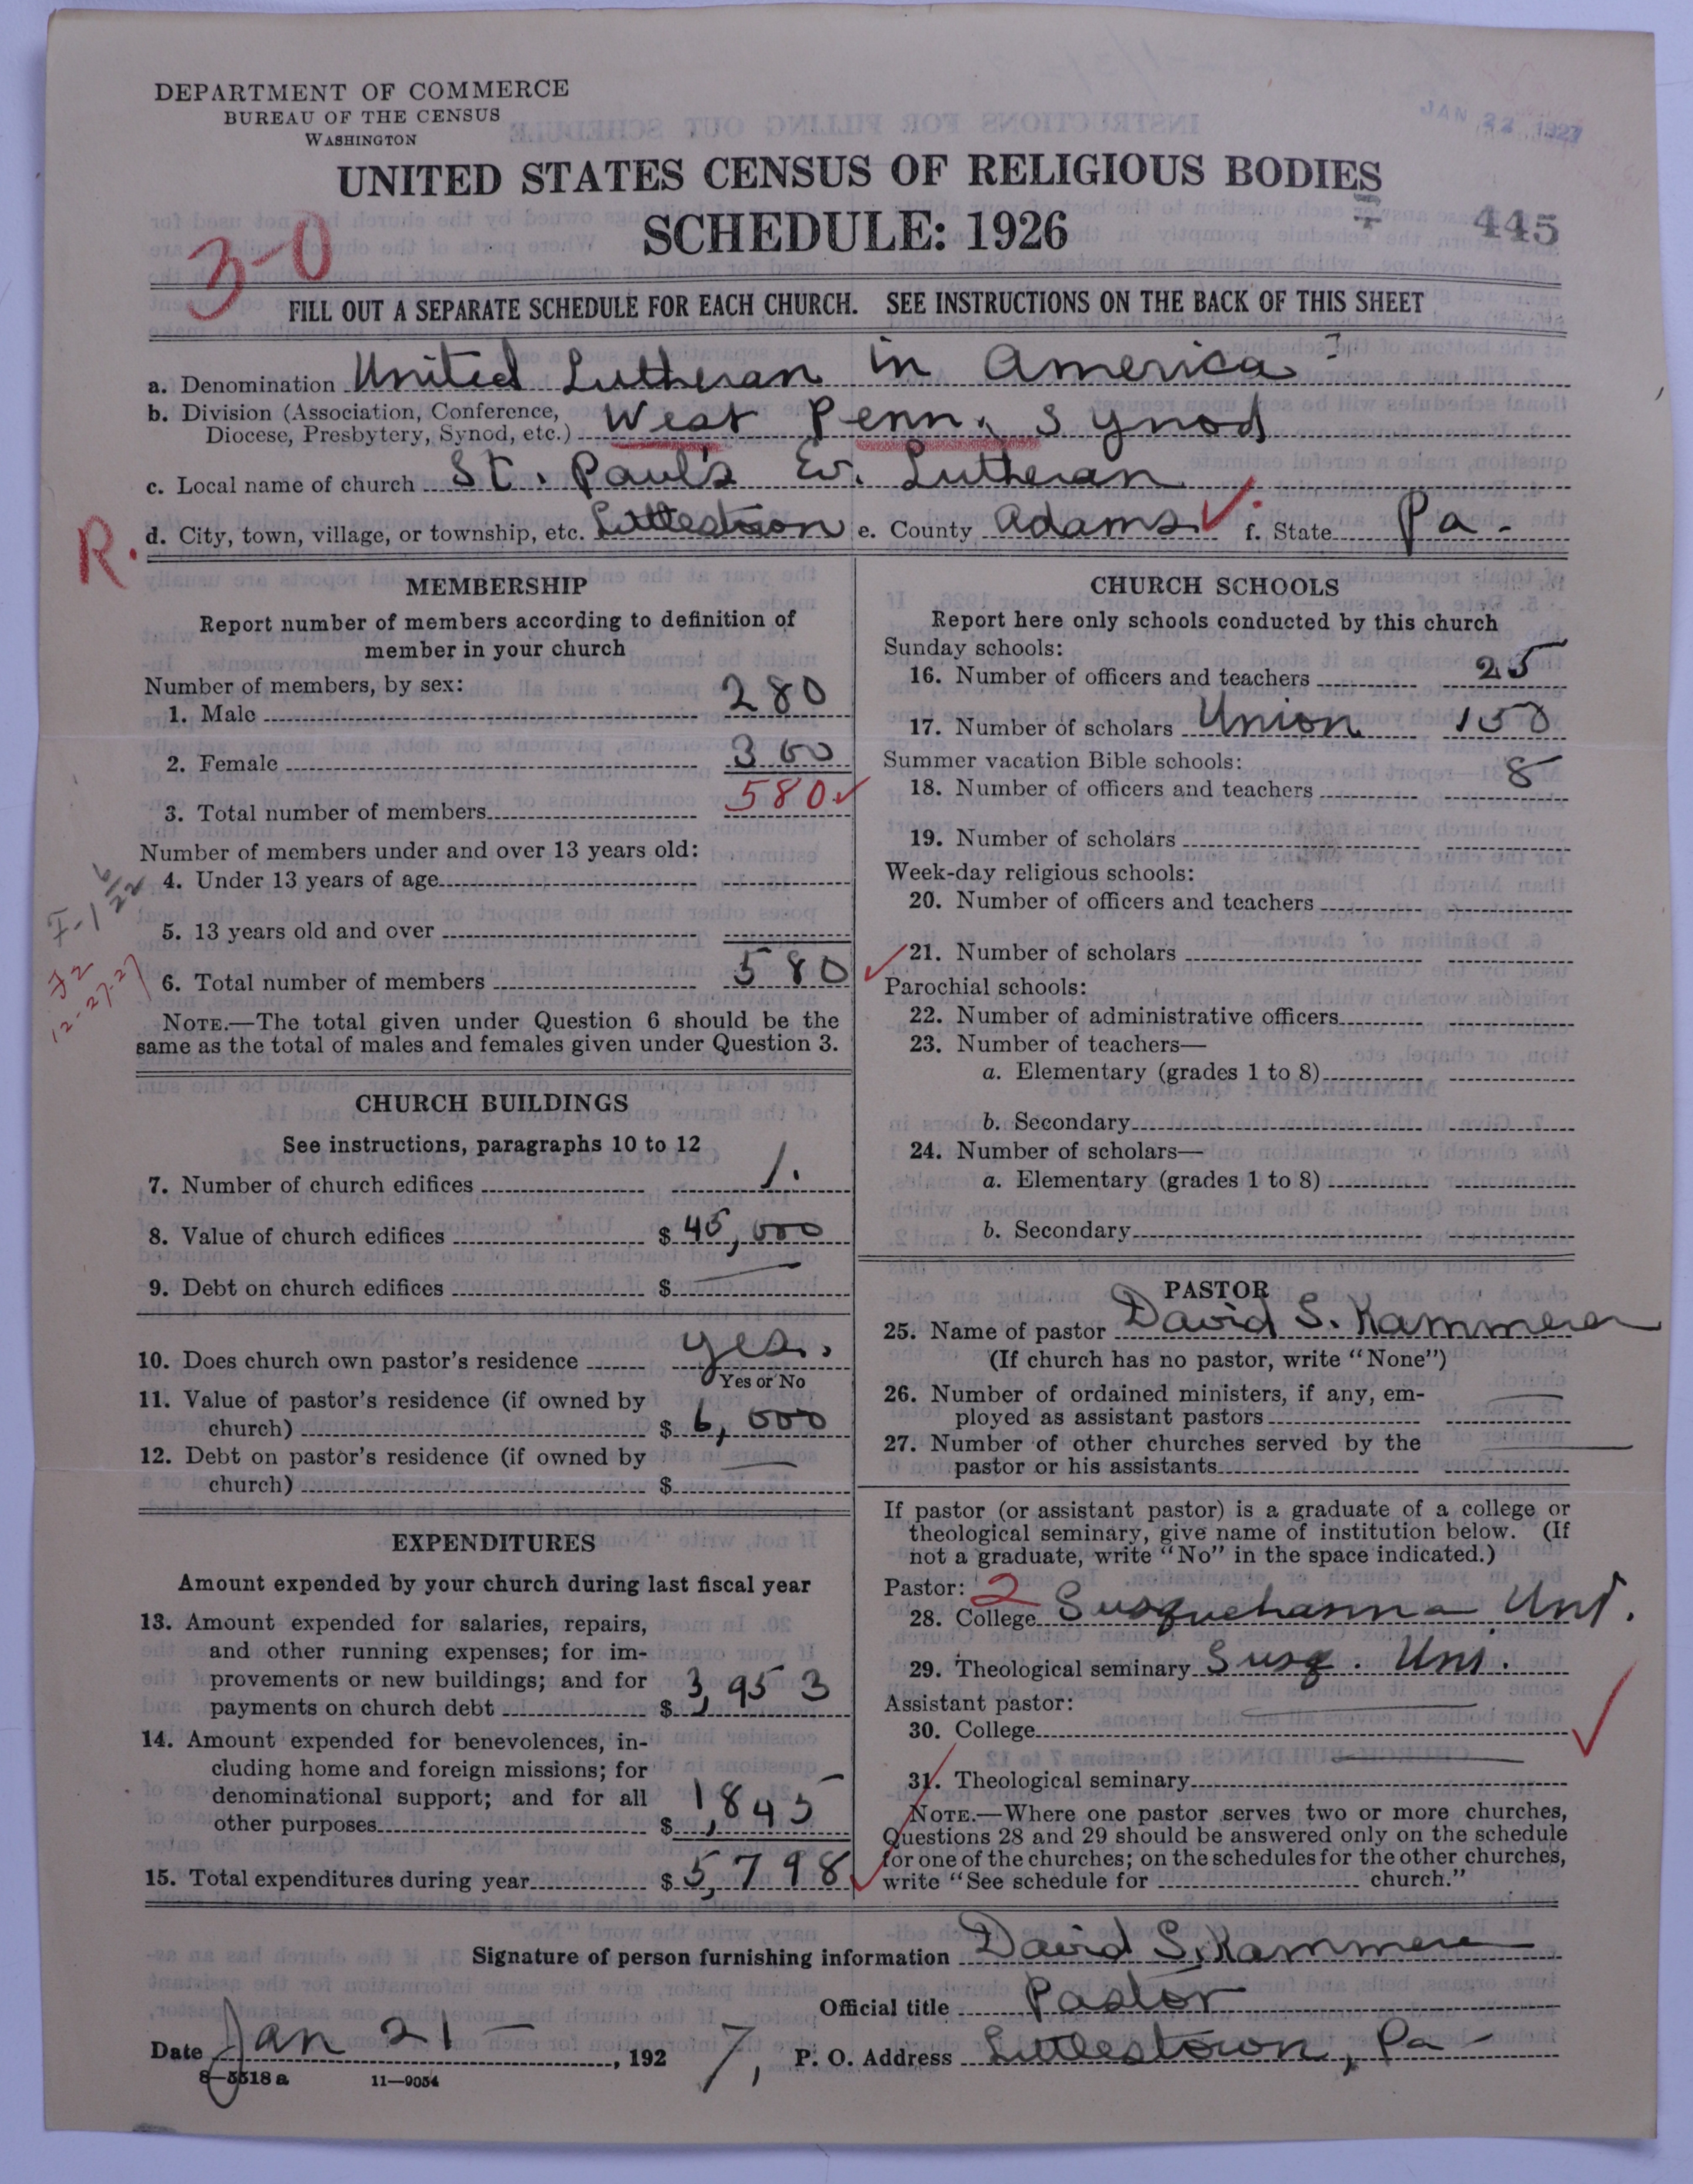 DEPARTMENT OF COMMERCE
BUREAU OF THE CENSUS
WASHINGTON
JAN 22 1927
UNITED STATES CENSUS OF RELIGIOUS BODIES
SCHEDULE: 1926
445
3-0
FILL OUT A SEPARATE SCHEDULE FOR EACH CHURCH. SEE INSTRUCTIONS ON THE BACK OF THIS SHEET
a. Denomination United Lutheran in America
b. Division (Association, Conference, Diocese, Presbytery, Synod, etc.) West Penn. Synod
c. Local name of church St. Paul's Ev. Lutheran
R.
d. City, town, village, or township, etc. Littlestown e. County Adams f. State Pa -
MEMBERSHIP
Report number of members according to definition of
member in your church
Number of members, by sex:
1. Male 280
2. Female 300
3. Total number of members 580
Number of members under and over 13 years old:
4. Under 13 years of age
5. 13 years old and over
6. Total number of members 580
NOTE.—The total given under Question 6 should be the
same as the total of males and females given under Question 3.
12-27-27
CHURCH BUILDINGS
See instructions, paragraphs 10 to 12
7. Number of church edifices 1.
8. Value of church edifices $ 45,000
9. Debt on church edifices $ —
10. Does church own pastor's residence yes.
Yes or No
11. Value of pastor's residence (if owned by
church) $ 6,000
12. Debt on pastor's residence (if owned by
church) $ —
EXPENDITURES
Amount expended by your church during last fiscal year
13. Amount expended for salaries, repairs,
and other running expenses; for im-
provements or new buildings; and for
payments on church debt $ 3,953
14. Amount expended for benevolences, in-
cluding home and foreign missions; for
denominational support; and for all
other purposes $ 1,845
15. Total expenditures during year $ 5,798
CHURCH SCHOOLS
Report here only schools conducted by this church
Sunday schools:
16. Number of officers and teachers 25
17. Number of scholars Union 150
Summer vacation Bible schools:
18. Number of officers and teachers 8
19. Number of scholars
Week-day religious schools:
20. Number of officers and teachers
21. Number of scholars
Parochial schools:
22. Number of administrative officers
23. Number of teachers—
a. Elementary (grades 1 to 8)
b. Secondary
24. Number of scholars—
a. Elementary (grades 1 to 8)
b. Secondary
PASTOR
25. Name of pastor David S. Kammerer
(If church has no pastor, write "None")
26. Number of ordained ministers, if any, em-
ployed as assistant pastors —
27. Number of other churches served by the
pastor or his assistants —
If pastor (or assistant pastor) is a graduate of a college or
theological seminary, give name of institution below. (If
not a graduate, write "No" in the space indicated.)
Pastor: 2
28. College Susquehanna Uni.
29. Theological seminary Susq. Uni.
Assistant pastor:
30. College —
31. Theological seminary —
NOTE.—Where one pastor serves two or more churches,
Questions 28 and 29 should be answered only on the schedule
for one of the churches; on the schedules for the other churches,
write "See schedule for church."
Signature of person furnishing information David S. Kammerer
Official title Pastor
Date Jan 21 -, 1927, P. O. Address Littlestown, Pa -
8—5518 a 11—9054